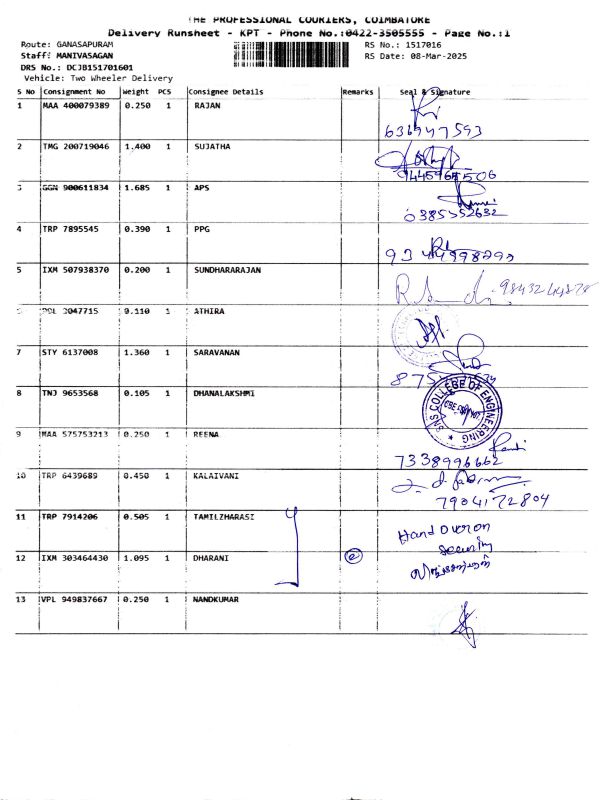 THE PROFESSIONAL COURIERS, COIMBATORE
Delivery Runsheet - KPT - Phone No.:0422-3505555 - Page No.:1
Route: GANASAPURAM RS No.: 1517016
Staff: MANIVASAGAN RS Date: 08-Mar-2025
DRS No.: DCJB151701601
Vehicle: Two Wheeler Delivery
S No Consignment No Weight PCS Consignee Details Remarks Seal & Signature
1 MAA 400079389 0.250 1 RAJAN
2 TMG 200719046 1.400 1 SUJATHA
3 GGN 900611834 1.685 1 APS
4 TRP 7895545 0.390 1 PPG
5 IXM 507938370 0.200 1 SUNDHARARAJAN
0.110 1 ATHIRA
7 STY 6137008 1.360 1 SARAVANAN
8 TNJ 9653568 0.105 1 DHANALAKSHMI
SNS COLLEGE OF ENGINEERING
9 MAA 575753213 0.250 1 REENA
7338996662
10 TRP 6439689 0.450 1 KALAIVANI
7904172804
11 TRP 7914206 0.505 1 TAMILZHARASI
Hand Over on
Security
12 IXM 303464430 1.095 1 DHARANI
13 VPL 949837667 0.250 1 NANDKUMAR